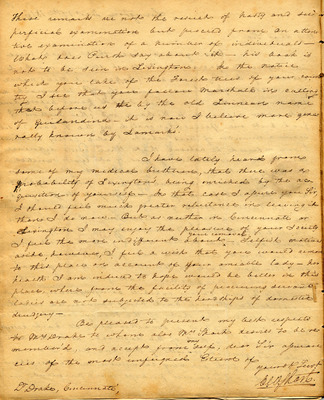 These remarks are not the result of hasty and su-
perficial examination but proceed from an atten-
tive examination of a number of individuals—
What says Pursh say about it — his book is
not to be seen in Lexington. In the notice
which you take of the Forest trees of your coun-
try I see that you follow Marshall in calling
that before us by the old Linnean name
of Guilandina— It is now I believe more gene-
rally known by Lamark's.
I have lately heard from
some of my medical brethren, that there was a
probability of Lexington being enriched by the ac-
quisition of yourself— In that case I assure you Sir,
I should feel much greater reluctance in leaving it
than I do now— But as neither in Cincinnati or
Lexington I may enjoy the pleasure of your society
I feel the more indifferent about
aside, however, I feel a wish that you would come
to this place on account of your amiable lady
health I am induced to hope would be better in this
place where from the facility of procuring servants
ladies are not subjected to the hardships of domestic
drudgery—
Be pleased to present my best respects
to Mrs Drake to whom also Mrs Short desires to be re-
membered, and accept from my self, dear Sir assuran-
ces of the most unfeigned Esteem of
yours truly
C W Short
Dr Drake, Cincinnati,